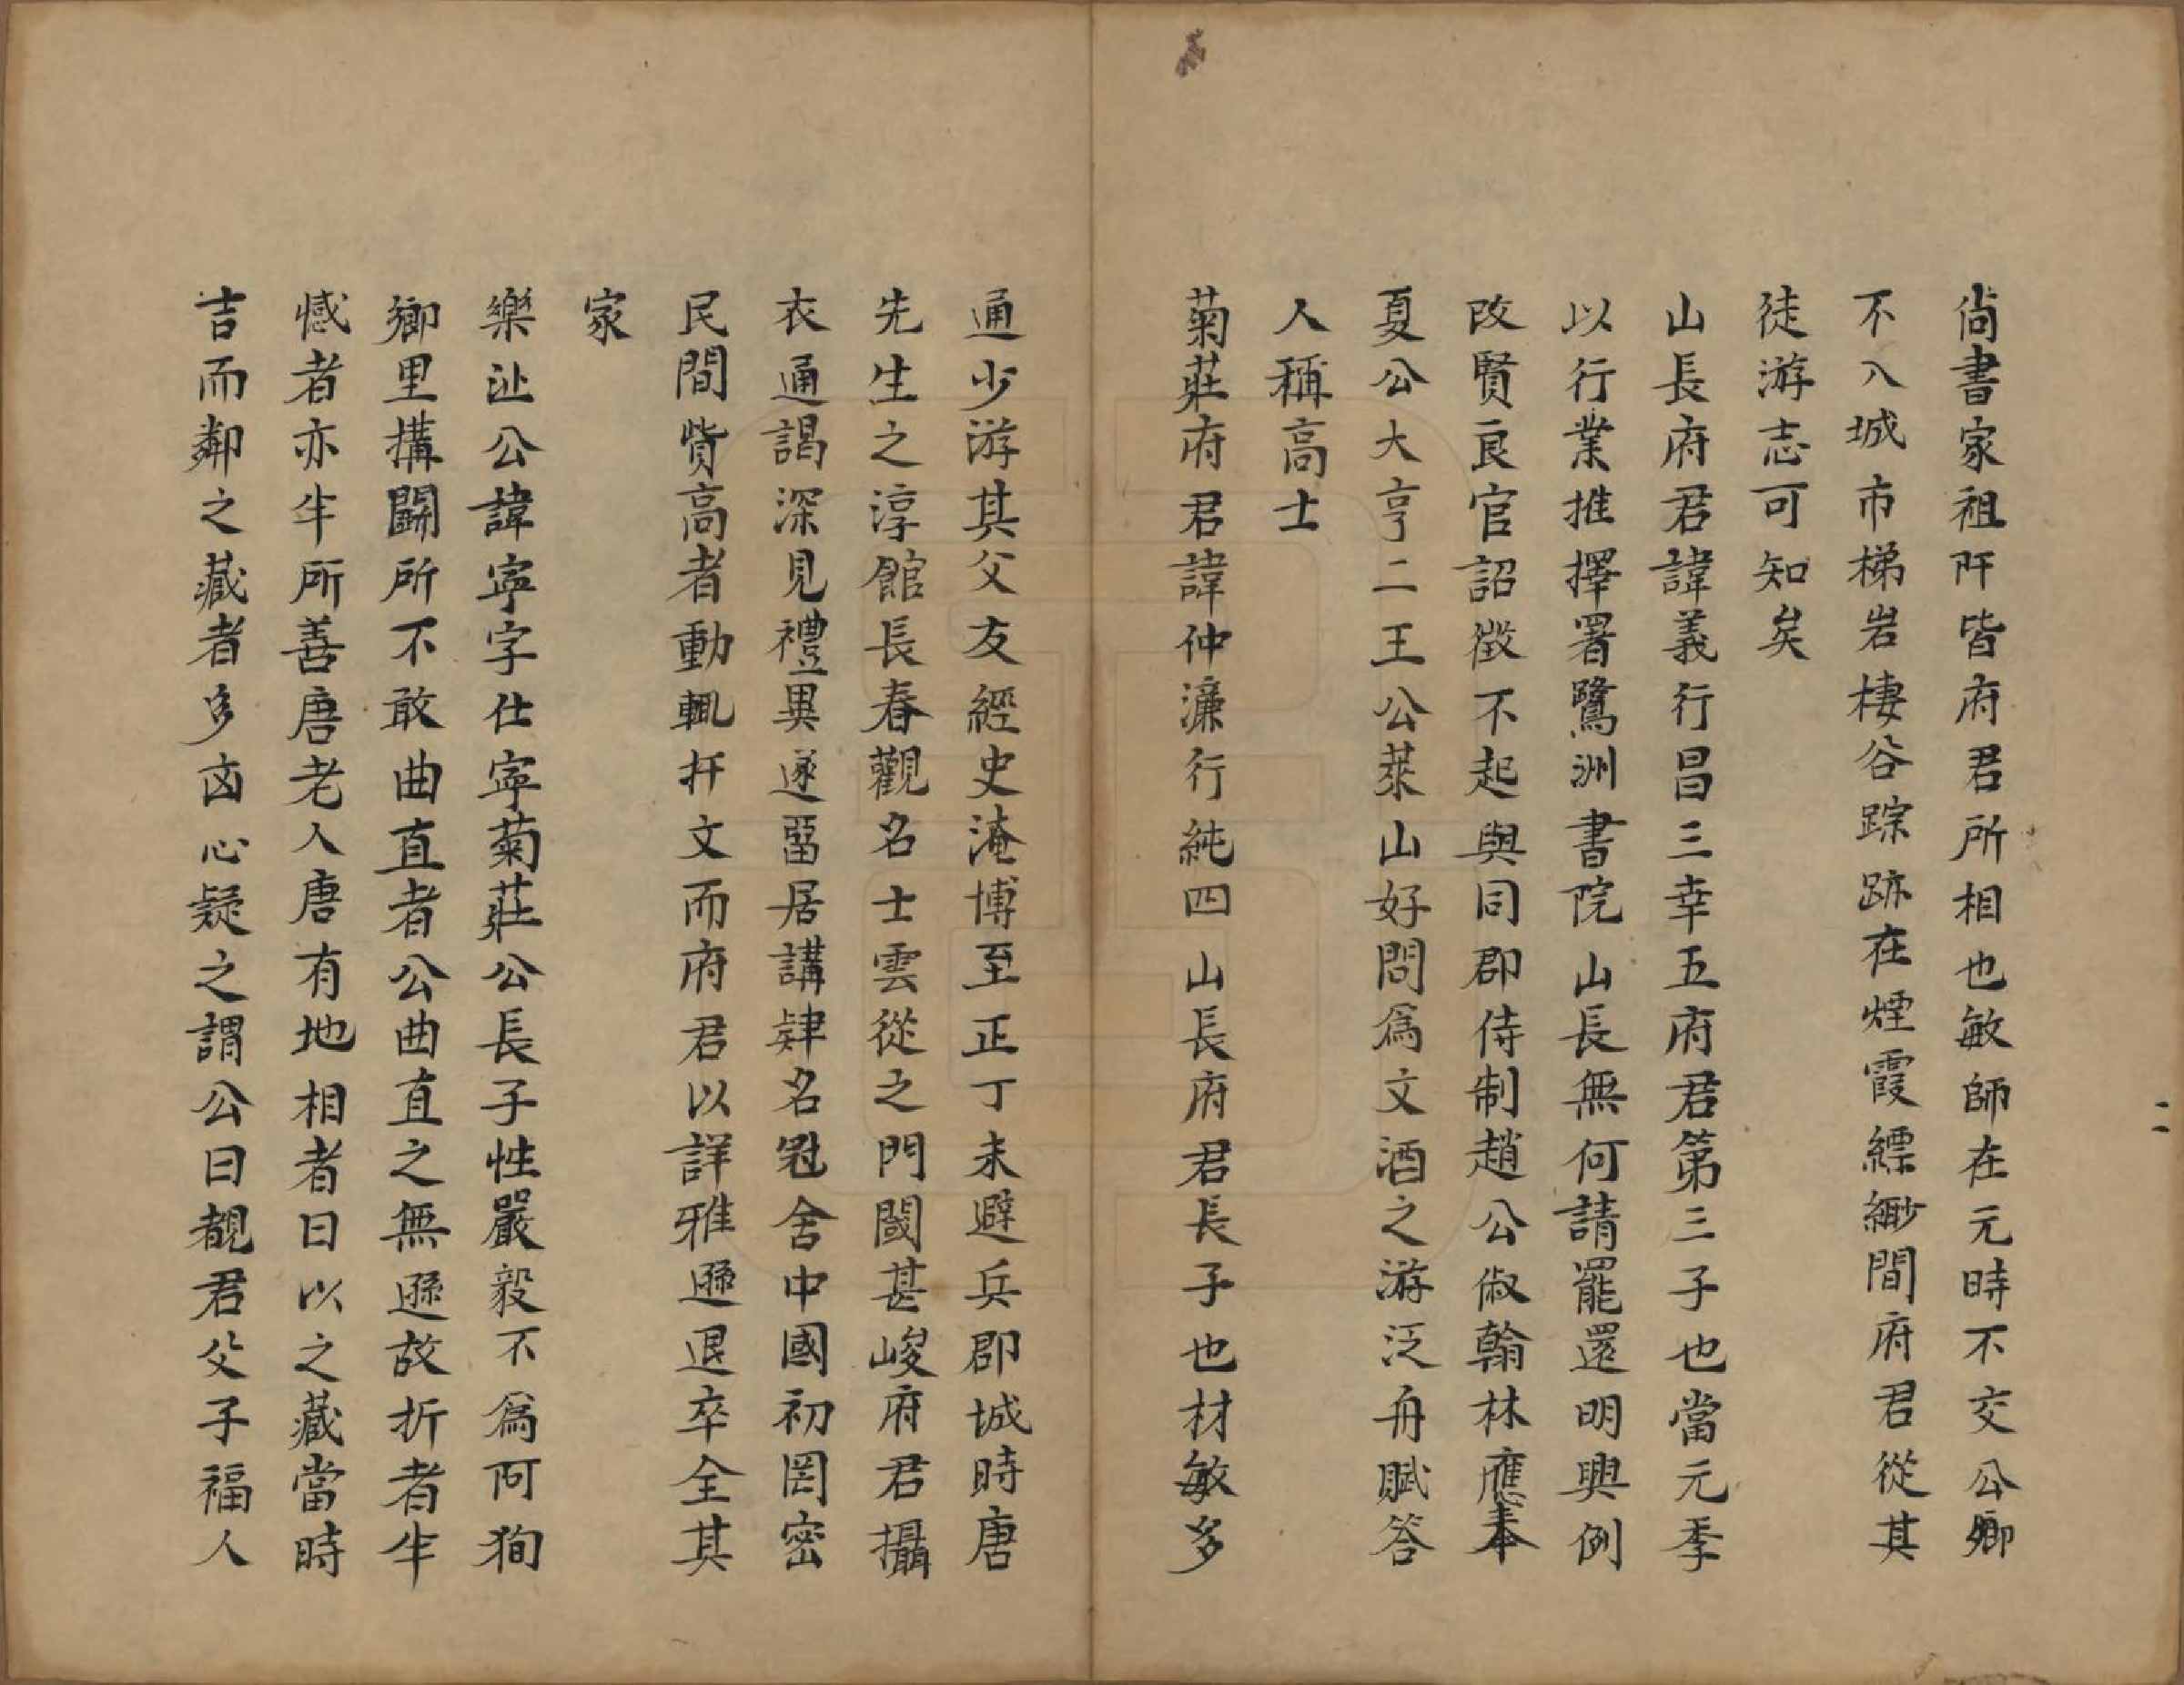 尙書家祖阡皆府君所相也敏師在元時不交公卿
不入城市梯岩棲谷踪跡在煙霞縹緲間府君從其
徒游志可知矣
山長府君諱義行昌三幸五府君第三子也當元季
以行業推擇署鷺洲書院山長無何請罷還明興例
改賢良官詔徵不起與同郡侍制趙公俶翰林應奉
夏公大亨二王公萊山好問爲文酒之游泛舟賦答
人稱高士
菊莊府君諱仲濂行純四山長府君長子也材敏多
通少游其父友經史淹博至正丁未避兵郡城時唐
先生之淳館長春觀名士雲從之門閾甚峻府君攝
衣通謁深見禮異遂畱居講肄名冠舍中國初罔密
民間貲高者動輒扞文而府君以詳雅遜退卒全其
家
樂沚公諱寧字仕寧菊莊公長子性嚴毅不爲阿狥
鄉里搆鬬所不敢曲直者公曲直之無遜故折者半
憾者亦半所善唐老人唐有地相者曰以之藏當時
吉而鄰之藏者多凶心疑之謂公曰觀君父子福人
二